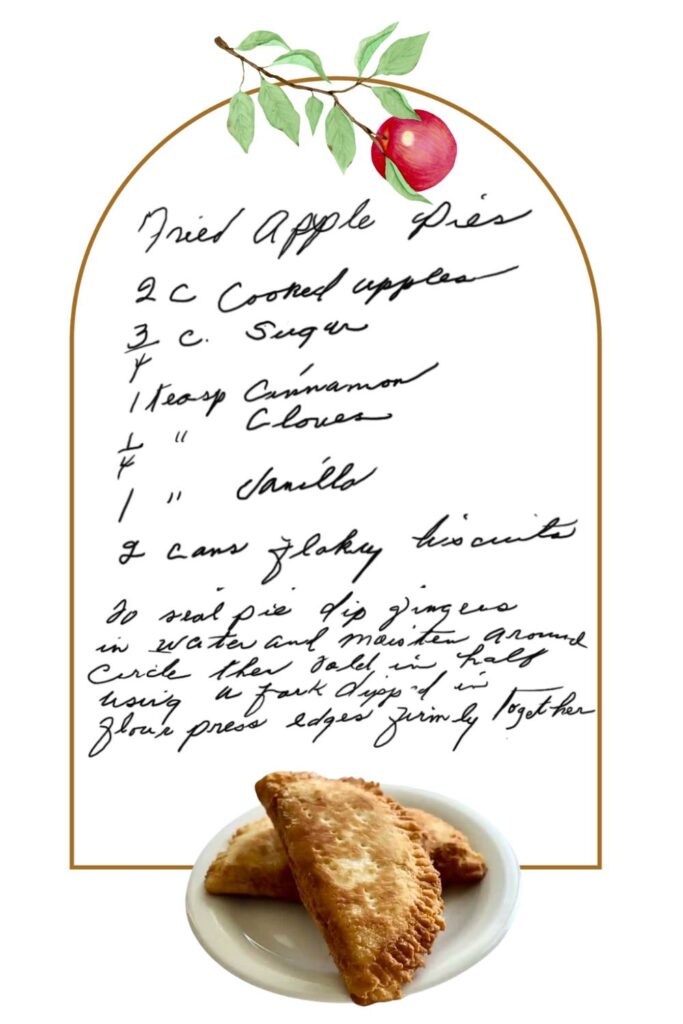 Fried Apple Pies
2 C Cooked apples
3/4 c. Sugar
1 teasp Cinnamon
1/4 " Cloves
1 " Vanilla
2 cans flaky biscuits
To seal pie dip fingers
in water and moisten around
circle then fold in half
using a fork dipp'd in
flour press edges firmly together